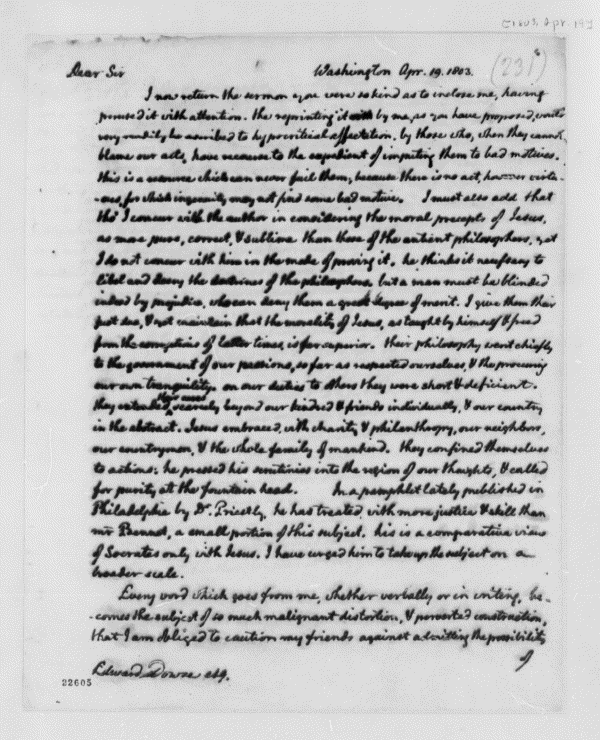 (231)
Dear Sir Washington Apr. 19. 1803.
I now return the sermon you were so kind as to inclose me, having
perused it with attention. the reprinting it by me, as you have proposed, would
very readily be ascribed to hypocritical affectation, by those who, when they cannot
blame our acts, have recourse to the expedient of imputing them to bad motives.
this is a resource which can never fail them; because there is no act, however virtu-
-ous, for which ingenuity may not find some bad motive. I must also add that
tho' I concur with the author in considering the moral precepts of Jesus,
as more pure, correct, & sublime than those of the antient philosophers, yet
I do not concur with him in the mode of proving it. he thinks it necessary to
libel and decry the doctrines of the philosophers. but a man must be blinded
indeed by prejudice, who can deny them a great degree of merit. I give them their
just due, & yet maintain that the morality of Jesus, as taught by himself & freed
from the corruptions of latter times, is far superior. their philosophy went chiefly
to the government of our passions, so far as respected ourselves, & the procuring
our own tranquility. on our duties to others they were short & deficient.
they extended their cares scarcely beyond our kindred & friends individually, & our country
in the abstract. Jesus embraced, with charity & philanthropy, our neighbors,
our countrymen, & the whole family of mankind. they confined themselves
to actions: he pressed his scrutinies into the region of our thoughts, & called
for purity at the fountain head. In a pamphlet lately published in
Philadelphia by Dr. Priestly, he has treated, with more justice & skill than
mr Bennet, a small portion of this subject. his is a comparative view
of Socrates only with Jesus. I have urged him to take up the subject on a
broader scale.
Every word which goes from me, whether verbally or in writing, be-
-comes the subject of so much malignant distortion, & perverted construction,
that I am obliged to caution my friends against admitting the possibility
of
Edward Dowse esq.
22605